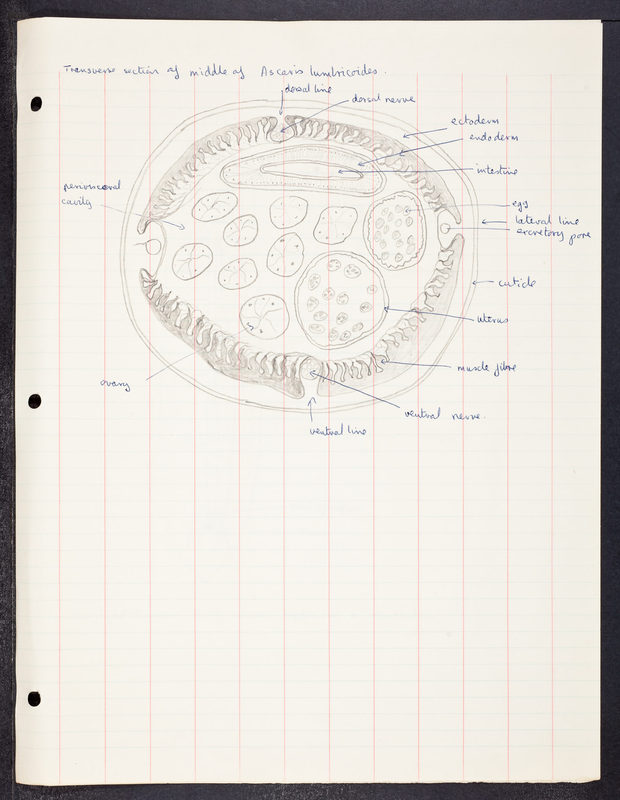 Transverse section of middle of Ascaris lumbricoides.
dorsal line
dorsal nerve
ectoderm
endoderm
intestine
perivisceral
cavity
egg
lateral line
excretory pore
cuticle
uterus
muscle fibre
ovary
ventral nerve.
ventral line